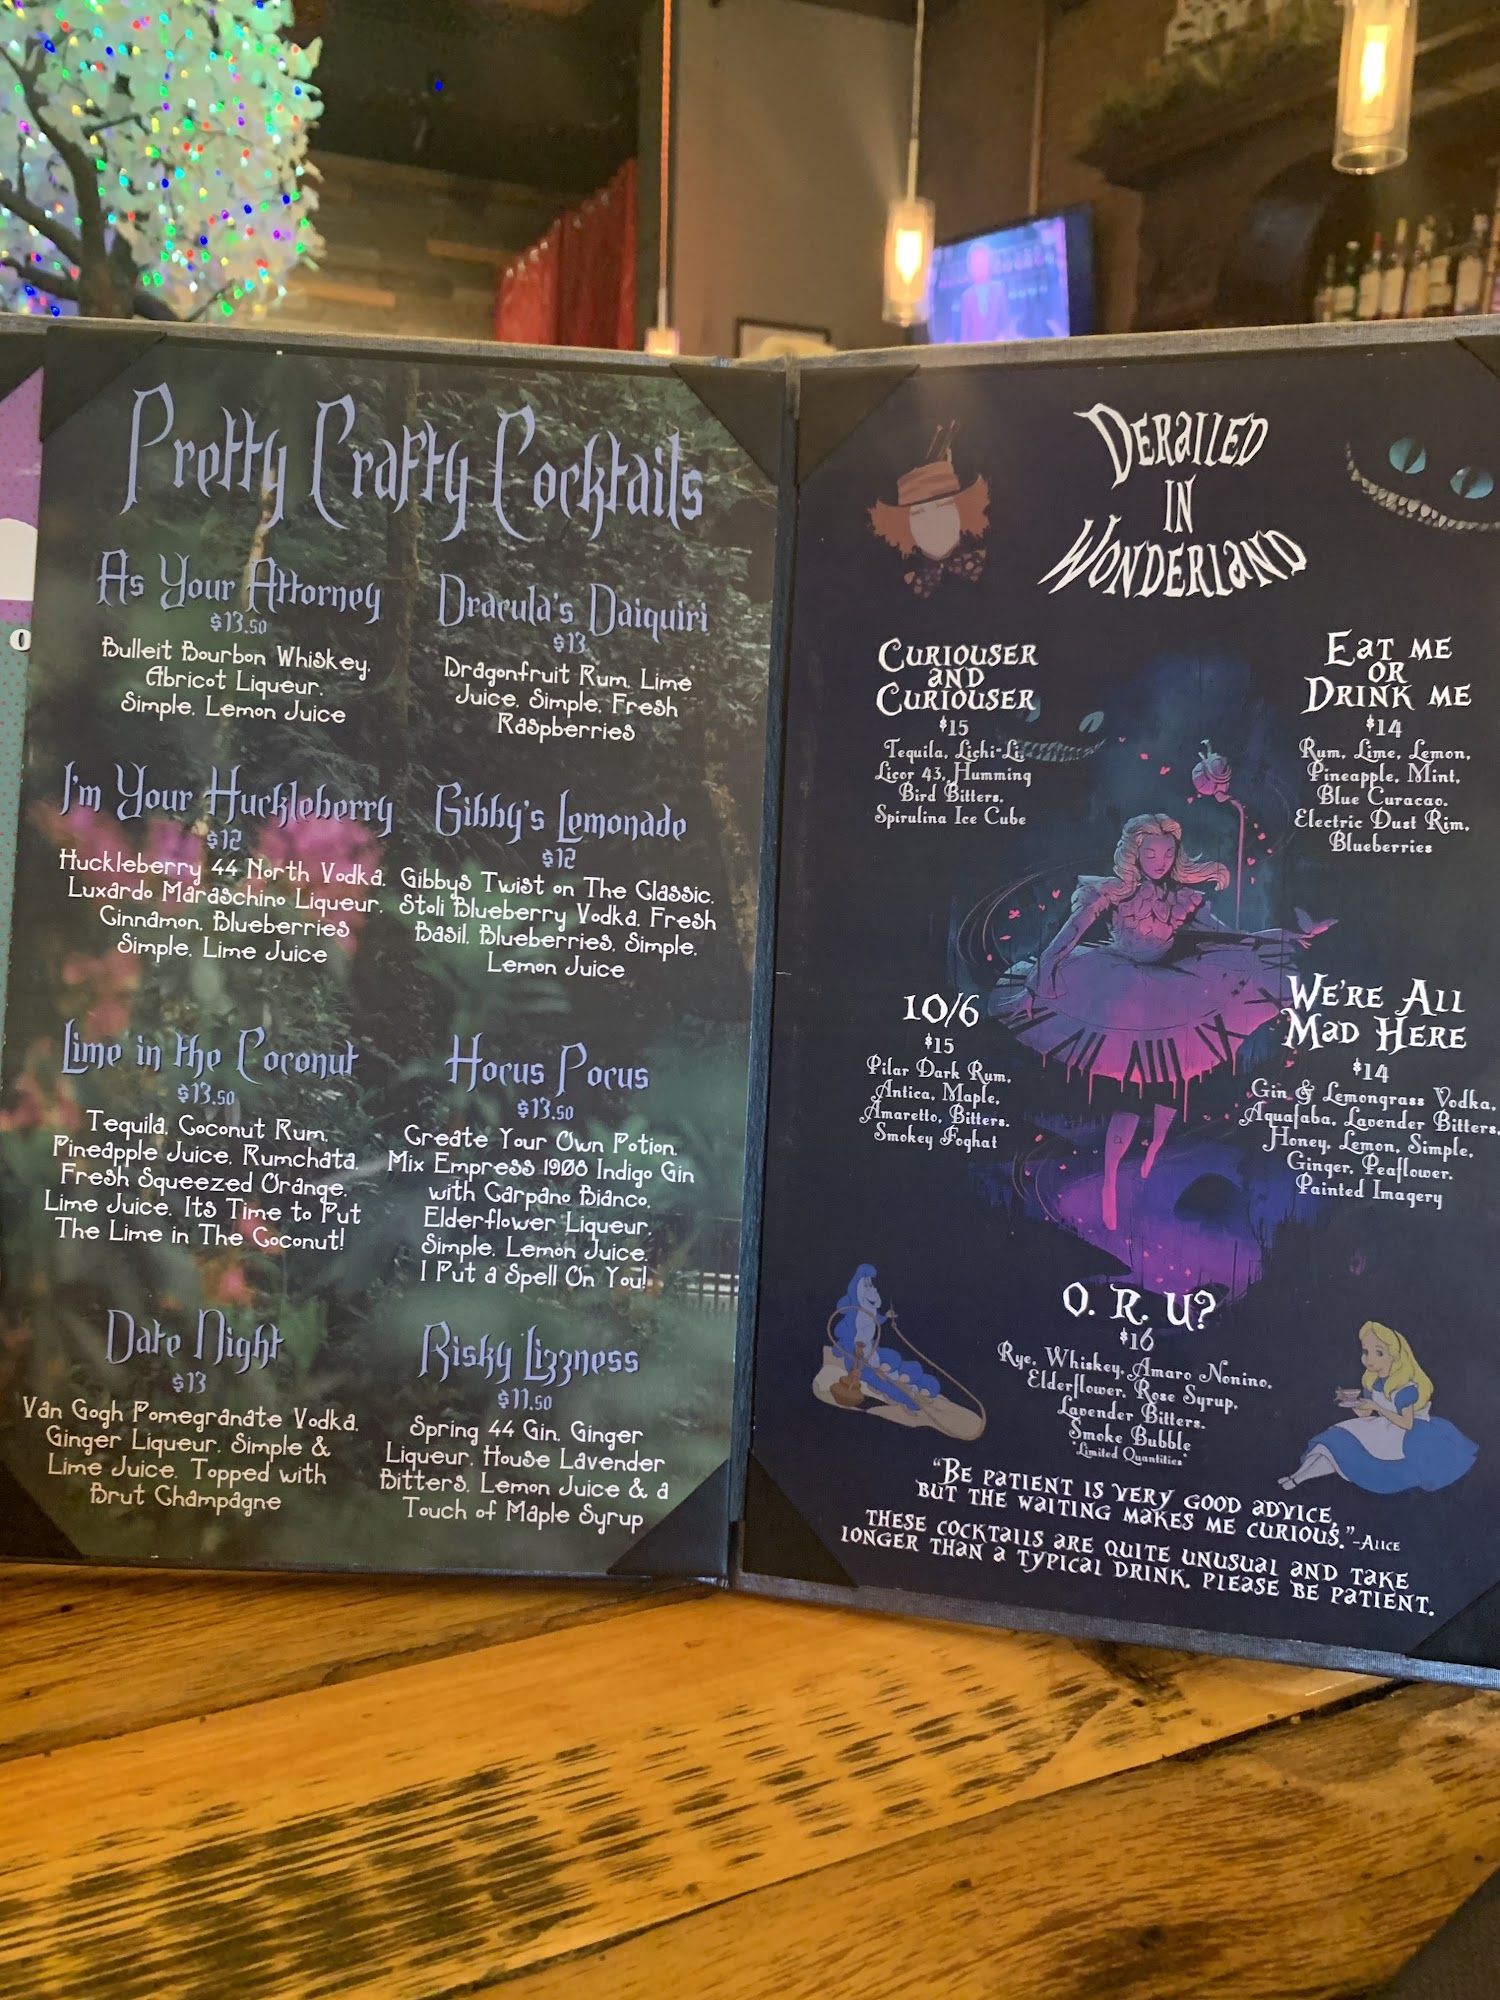 Pretty Crafty Cocktails
As Your Attorney
$13.50
Bulleit Bourbon Whiskey,
Abricot Liqueur,
Simple, Lemon Juice
Dracula's Daiquiri
$13
Dragonfruit Rum, Lime
Juice, Simple, Fresh
Raspberries
I'm Your Huckleberry
$12
Huckleberry 44 North Vodka,
Luxardo Maraschino Liqueur,
Cinnamon, Blueberries
Simple, Lime Juice
Gibby's Lemonade
$12
Gibbys Twist on The Classic.
Stoli Blueberry Vodka, Fresh
Basil, Blueberries, Simple,
Lemon Juice
Lime in the Coconut
$13.50
Tequila, Coconut Rum,
Pineapple Juice, Rumchata,
Fresh Squeezed Orange,
Lime Juice. Its Time to Put
The Lime in The Coconut!
Hocus Pocus
$13.50
Create Your Own Potion.
Mix Empress 1908 Indigo Gin
with Carpano Bianco,
Elderflower Liqueur,
Simple, Lemon Juice.
I Put a Spell On You!
Date Night
$13
Van Gogh Pomegranate Vodka,
Ginger Liqueur, Simple &
Lime Juice. Topped with
Brut Champagne
Risky Lizzness
$11.50
Spring 44 Gin, Ginger
Liqueur, House Lavender
Bitters, Lemon Juice & a
Touch of Maple Syrup
DERAILED
IN
WONDERLAND
CURIOUSER
AND
CURIOUSER
$15
Tequila, Lichi-Li,
Licor 43, Humming
Bird Bitters,
Spirulina Ice Cube
EAT ME
OR
DRINK ME
$14
Rum, Lime, Lemon,
Pineapple, Mint,
Blue Curacao,
Electric Dust Rim,
Blueberries
10/6
$15
Pilar Dark Rum,
Antica, Maple,
Amaretto, Bitters,
Smokey Foghat
WE'RE ALL
MAD HERE
$14
Gin & Lemongrass Vodka,
Aquafaba, Lavender Bitters,
Honey, Lemon, Simple,
Ginger, Peaflower,
Painted Imagery
O. R. U?
$16
Rye, Whiskey, Amaro Nonino,
Elderflower, Rose Syrup,
Lavender Bitters,
Smoke Bubble
*Limited Quantities*
"BE PATIENT IS VERY GOOD ADVICE,
BUT THE WAITING MAKES ME CURIOUS." -ALICE
THESE COCKTAILS ARE QUITE UNUSUAL AND TAKE
LONGER THAN A TYPICAL DRINK, PLEASE BE PATIENT.